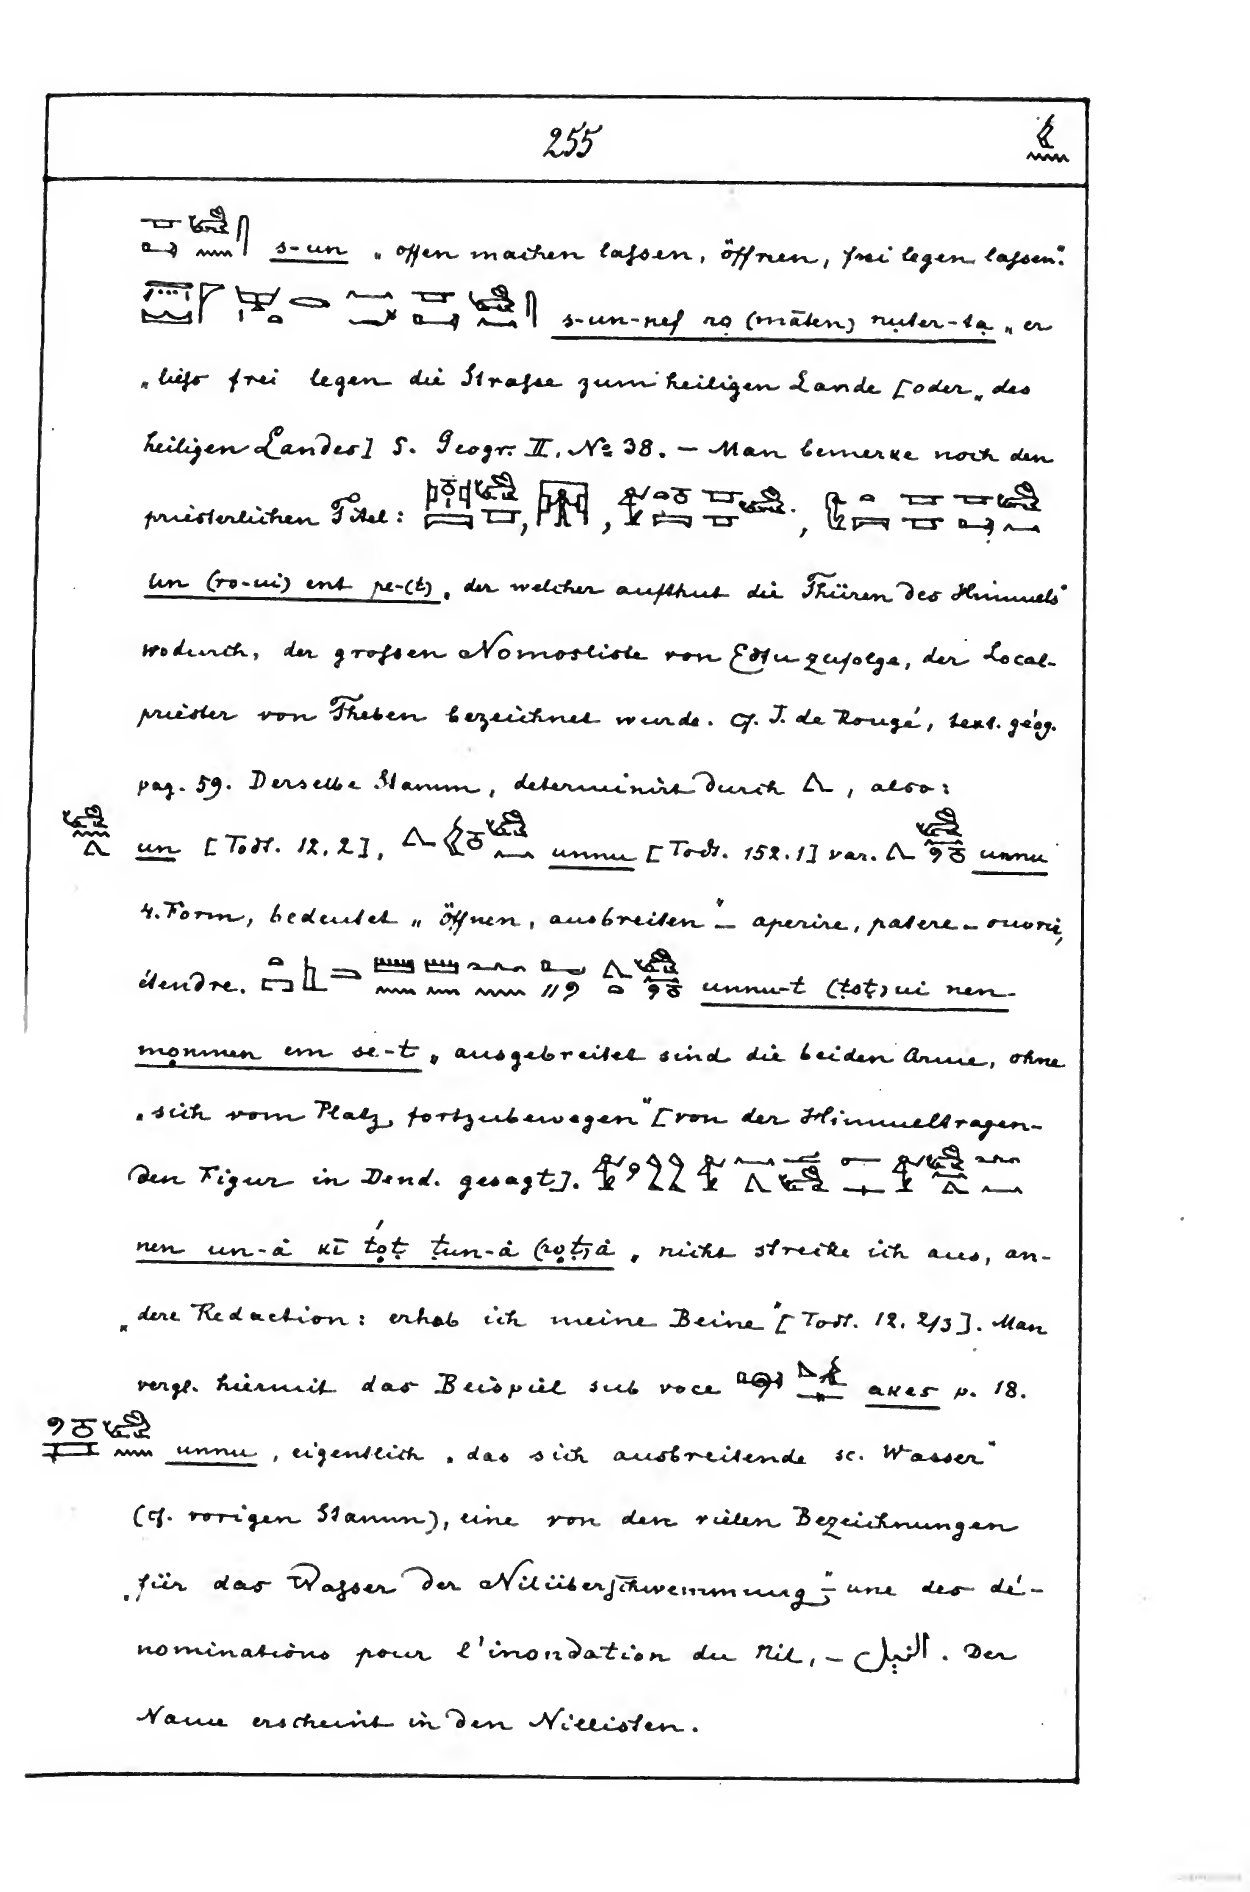 255
s-un „offen machen lassen, öffnen, frei legen lassen“.
s-un-nef ro (māten) nuter-ta „er
„liess frei legen die Strasse zum heiligen Lande [oder „des
heiligen Landes] S. Geogr. II. No 38. – Man bemerke noch den
priesterlichen Titel: , , ,
un (ro-ui) ent pe-(t) „der welcher aufthut die Thüren des Himmels“
wodurch, der grossen Nomosliste von Edfu zufolge, der Local-
priester von Theben bezeichnet wurde. cf. J. de Rougé, text. géog.
pag. 59. Derselbe Stamm, determinirt durch , also:
un [Todt. 12. 2], unnu [Todt. 152. 1] var. unnu
4. Form, bedeutet „öffnen, ausbreiten“ – aperire, patere – ouvrir,
étendre. unnu-t (toṭ)ui nen-
monmen em se-t „ausgebreitet sind die beiden Arme, ohne
„sich vom Platz fortzubewegen“ [von der Himmeltragen-
den Figur in Dend. gesagt].
nen un-à kī toṭ ṭun-à (roṭ)à „nicht strecke ich aus, an-
„dere Redaction: erhob ich meine Beine“ [Todt. 12. 2/3]. Man
vergl. hiermit das Beispiel sub voce akes p. 18.
unnu, eigentlich „das sich ausbreitende sc. Wasser“
(cf. vorigen Stamm), eine von den vielen Bezeichnungen
„für das Wasser der Nilüberschwemmung“, – une des dé-
nominations pour l'inondation du Nil, – النيل. Der
Name erscheint in den Nillisten.